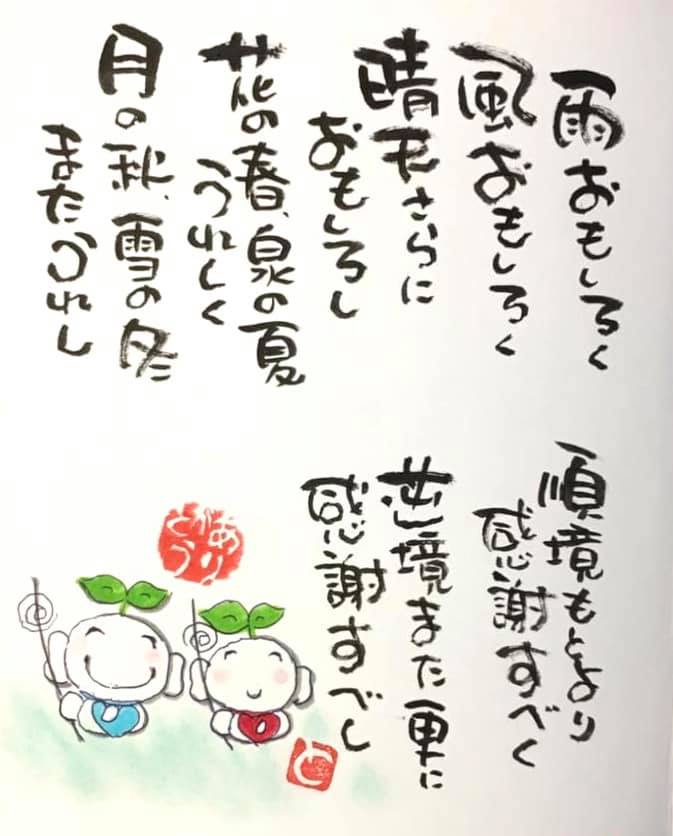 雨おもしろく
風おもしろく
晴もさらに
おもしろし
花の春、泉の夏
うれしく
月の秋、雪の冬
またうれし
順境もとより
感謝すべく
逆境また更に
感謝すべし
ありがとう
と